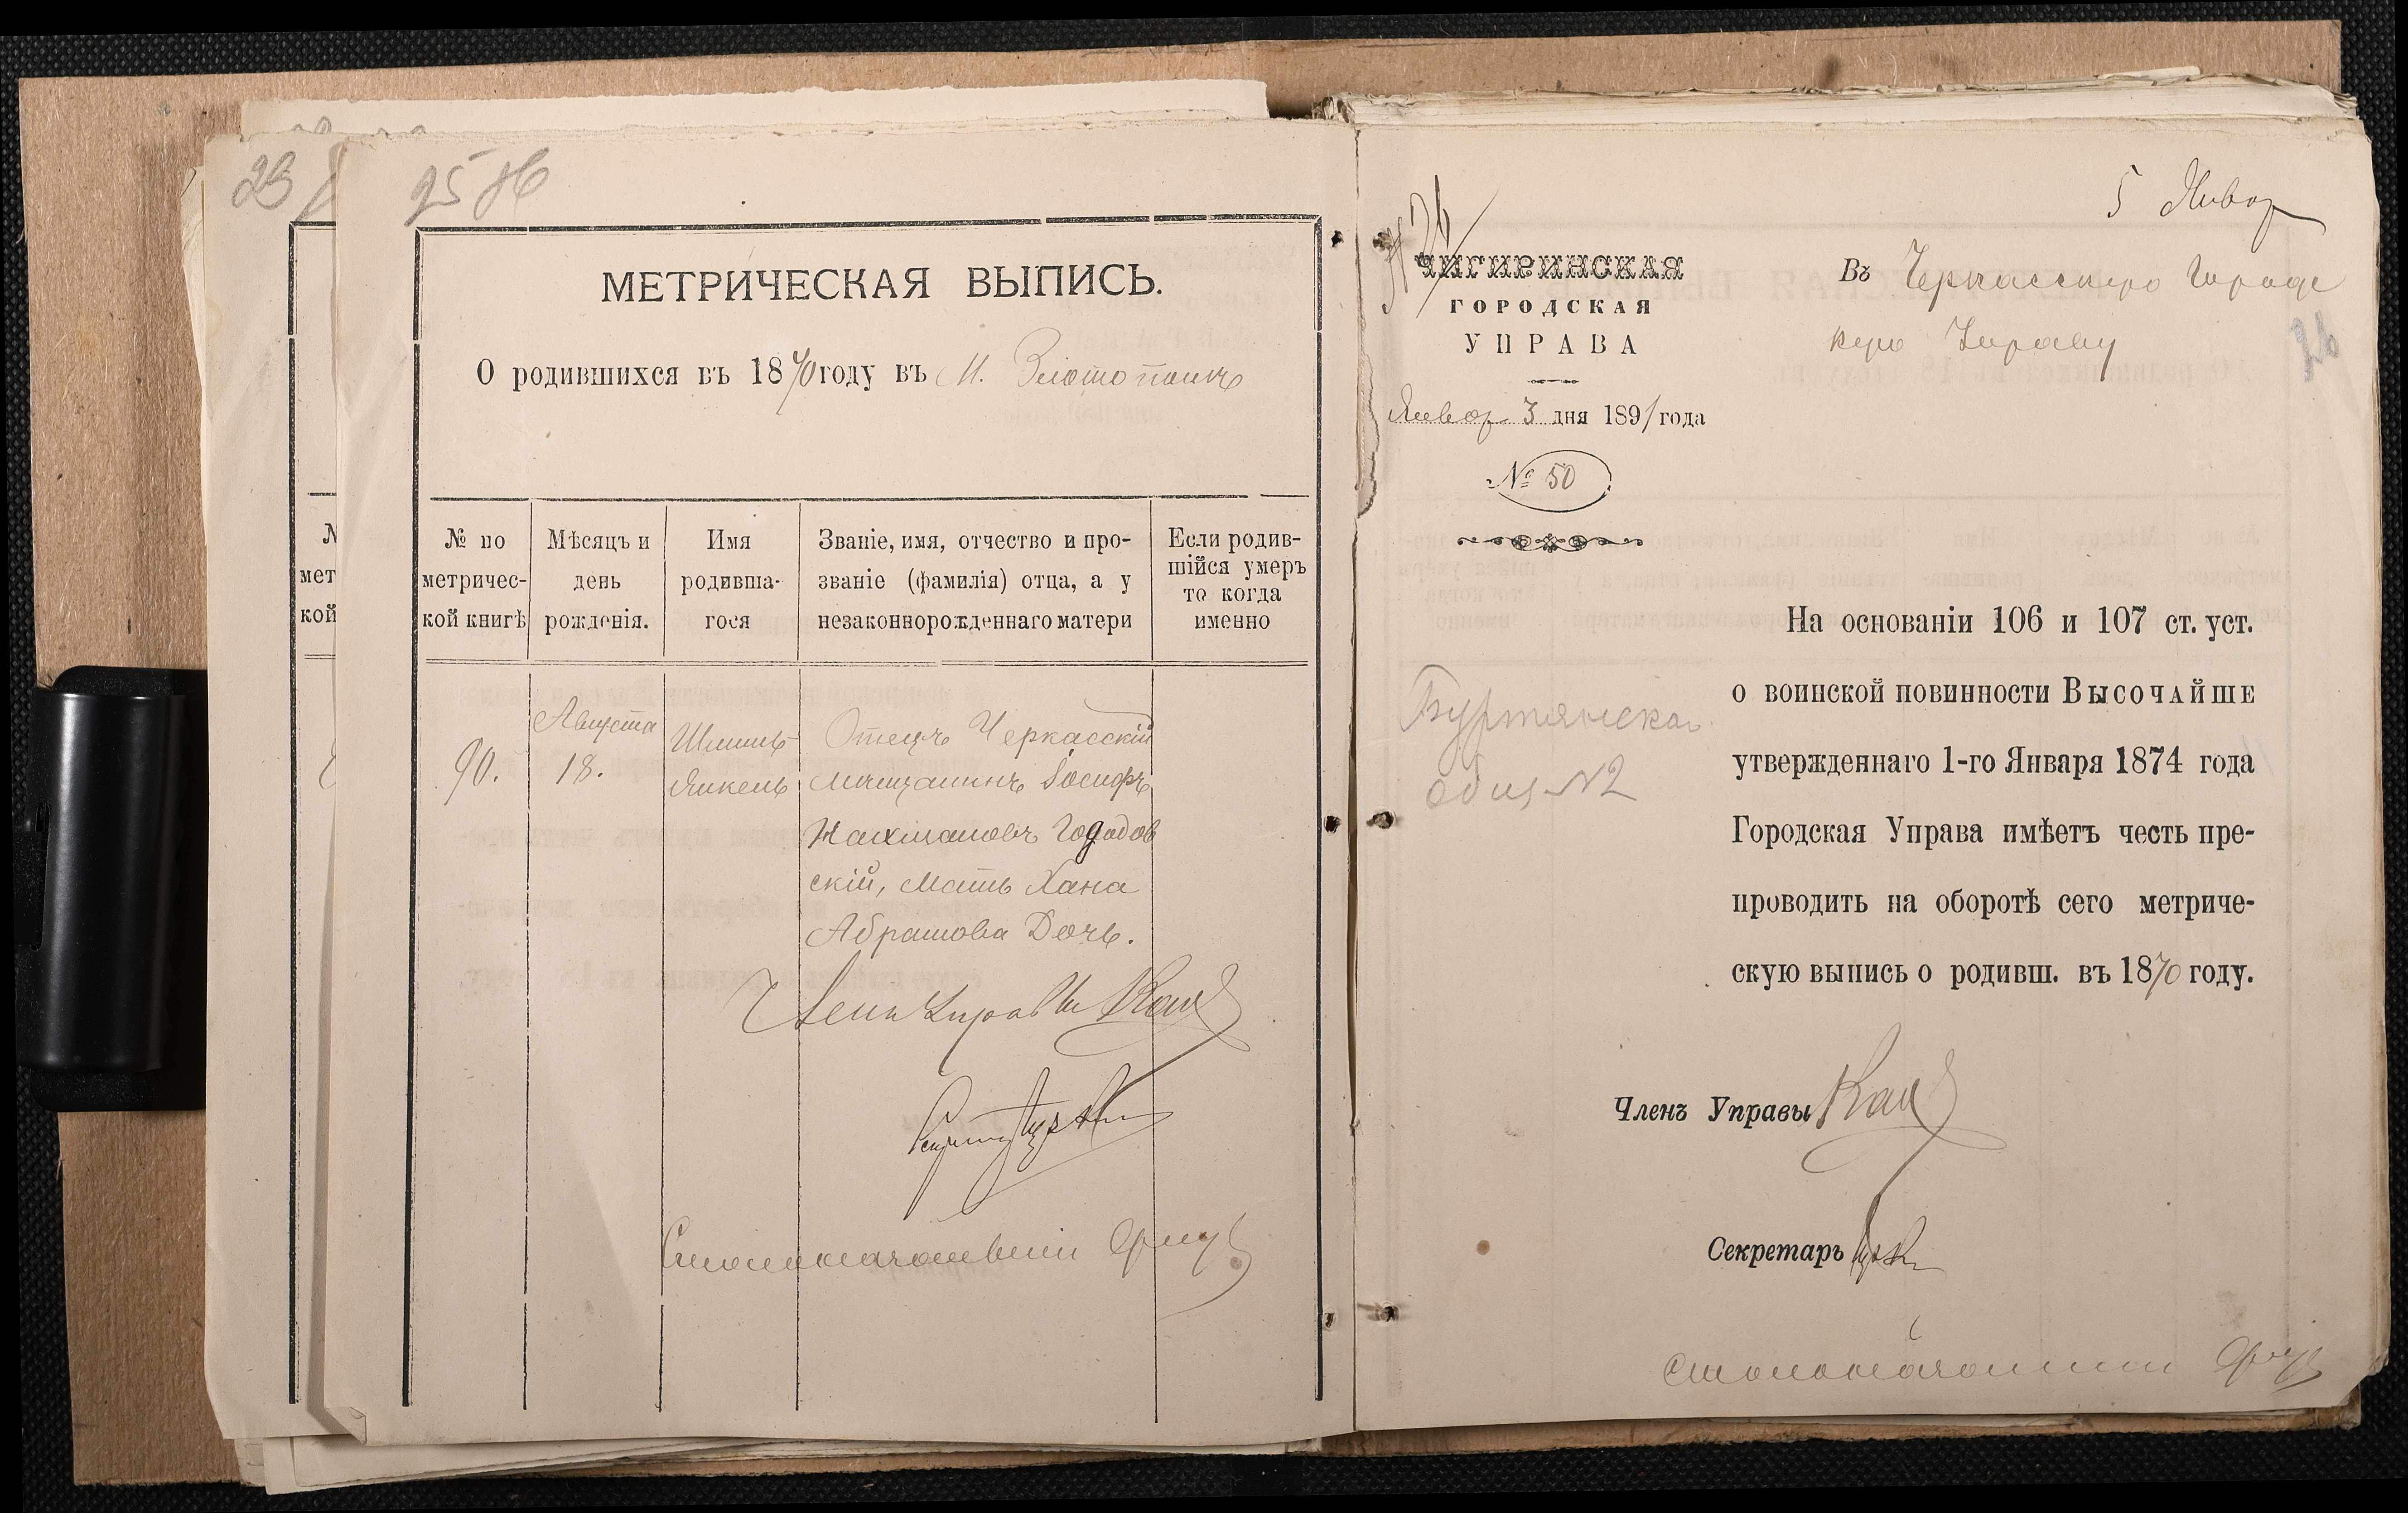 23
25 об
МЕТРИЧЕСКАЯ ВЫПИСЬ.
О родившихся въ 1870 году въ М. Златополь
№ по метричес-кой книгѣ
Мѣсяцъ и день рожденія.
Имя родивша-гося
Званіе, имя, отчество и про-
званіе (фамилія) отца, а у
незаконнорожденнаго матери
Если родив-
шійся умеръ
то когда
именно
№
мет
кой
90.
Августа
18.
Шмиль
Янкель
Отецъ Черкасскій
мѣщанинъ Іосифъ
Нахмановъ Городов
скій, мать Хана
Абрамова Дочь.
Членъ Управы Кац
Секретарь
Столоначальникъ
5 Январ
26
ЧИГИРИНСКАЯ
ГОРОДСКАЯ
УПРАВА
Январ 3 дня 1891 года
№ 50
Въ Черкасскую Городс
кую Управу
26
На основаніи 106 и 107 ст. уст.
о воинской повинности Высочайше
утвержденнаго 1-го Января 1874 года
Городская Управа имѣетъ честь пре-
проводить на оборотѣ сего метриче-
скую выпись о родивш. въ 1870 году.
Буртянская
общ. № 2
Членъ Управы Кац
Секретарь
Столоначальникъ